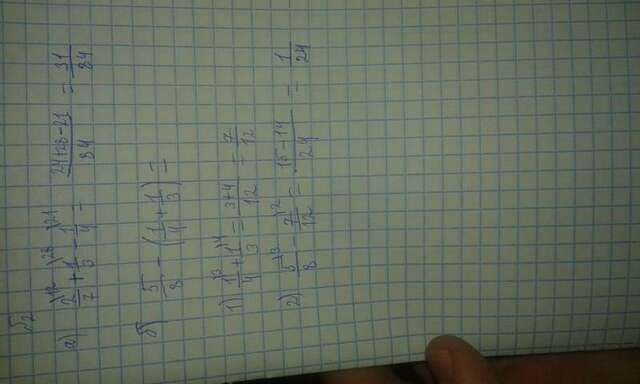 Б2
а) 2/7\12 + 1/3\28 - 1/4\21 = (24+28-21)/84 = 31/84
б) 5/8 - (1/4 + 1/3) =
1) 1/4\3 + 1/3\4 = (3+4)/12 = 7/12
2) 5/8\3 - 7/12\2 = (15-14)/24 = 1/24